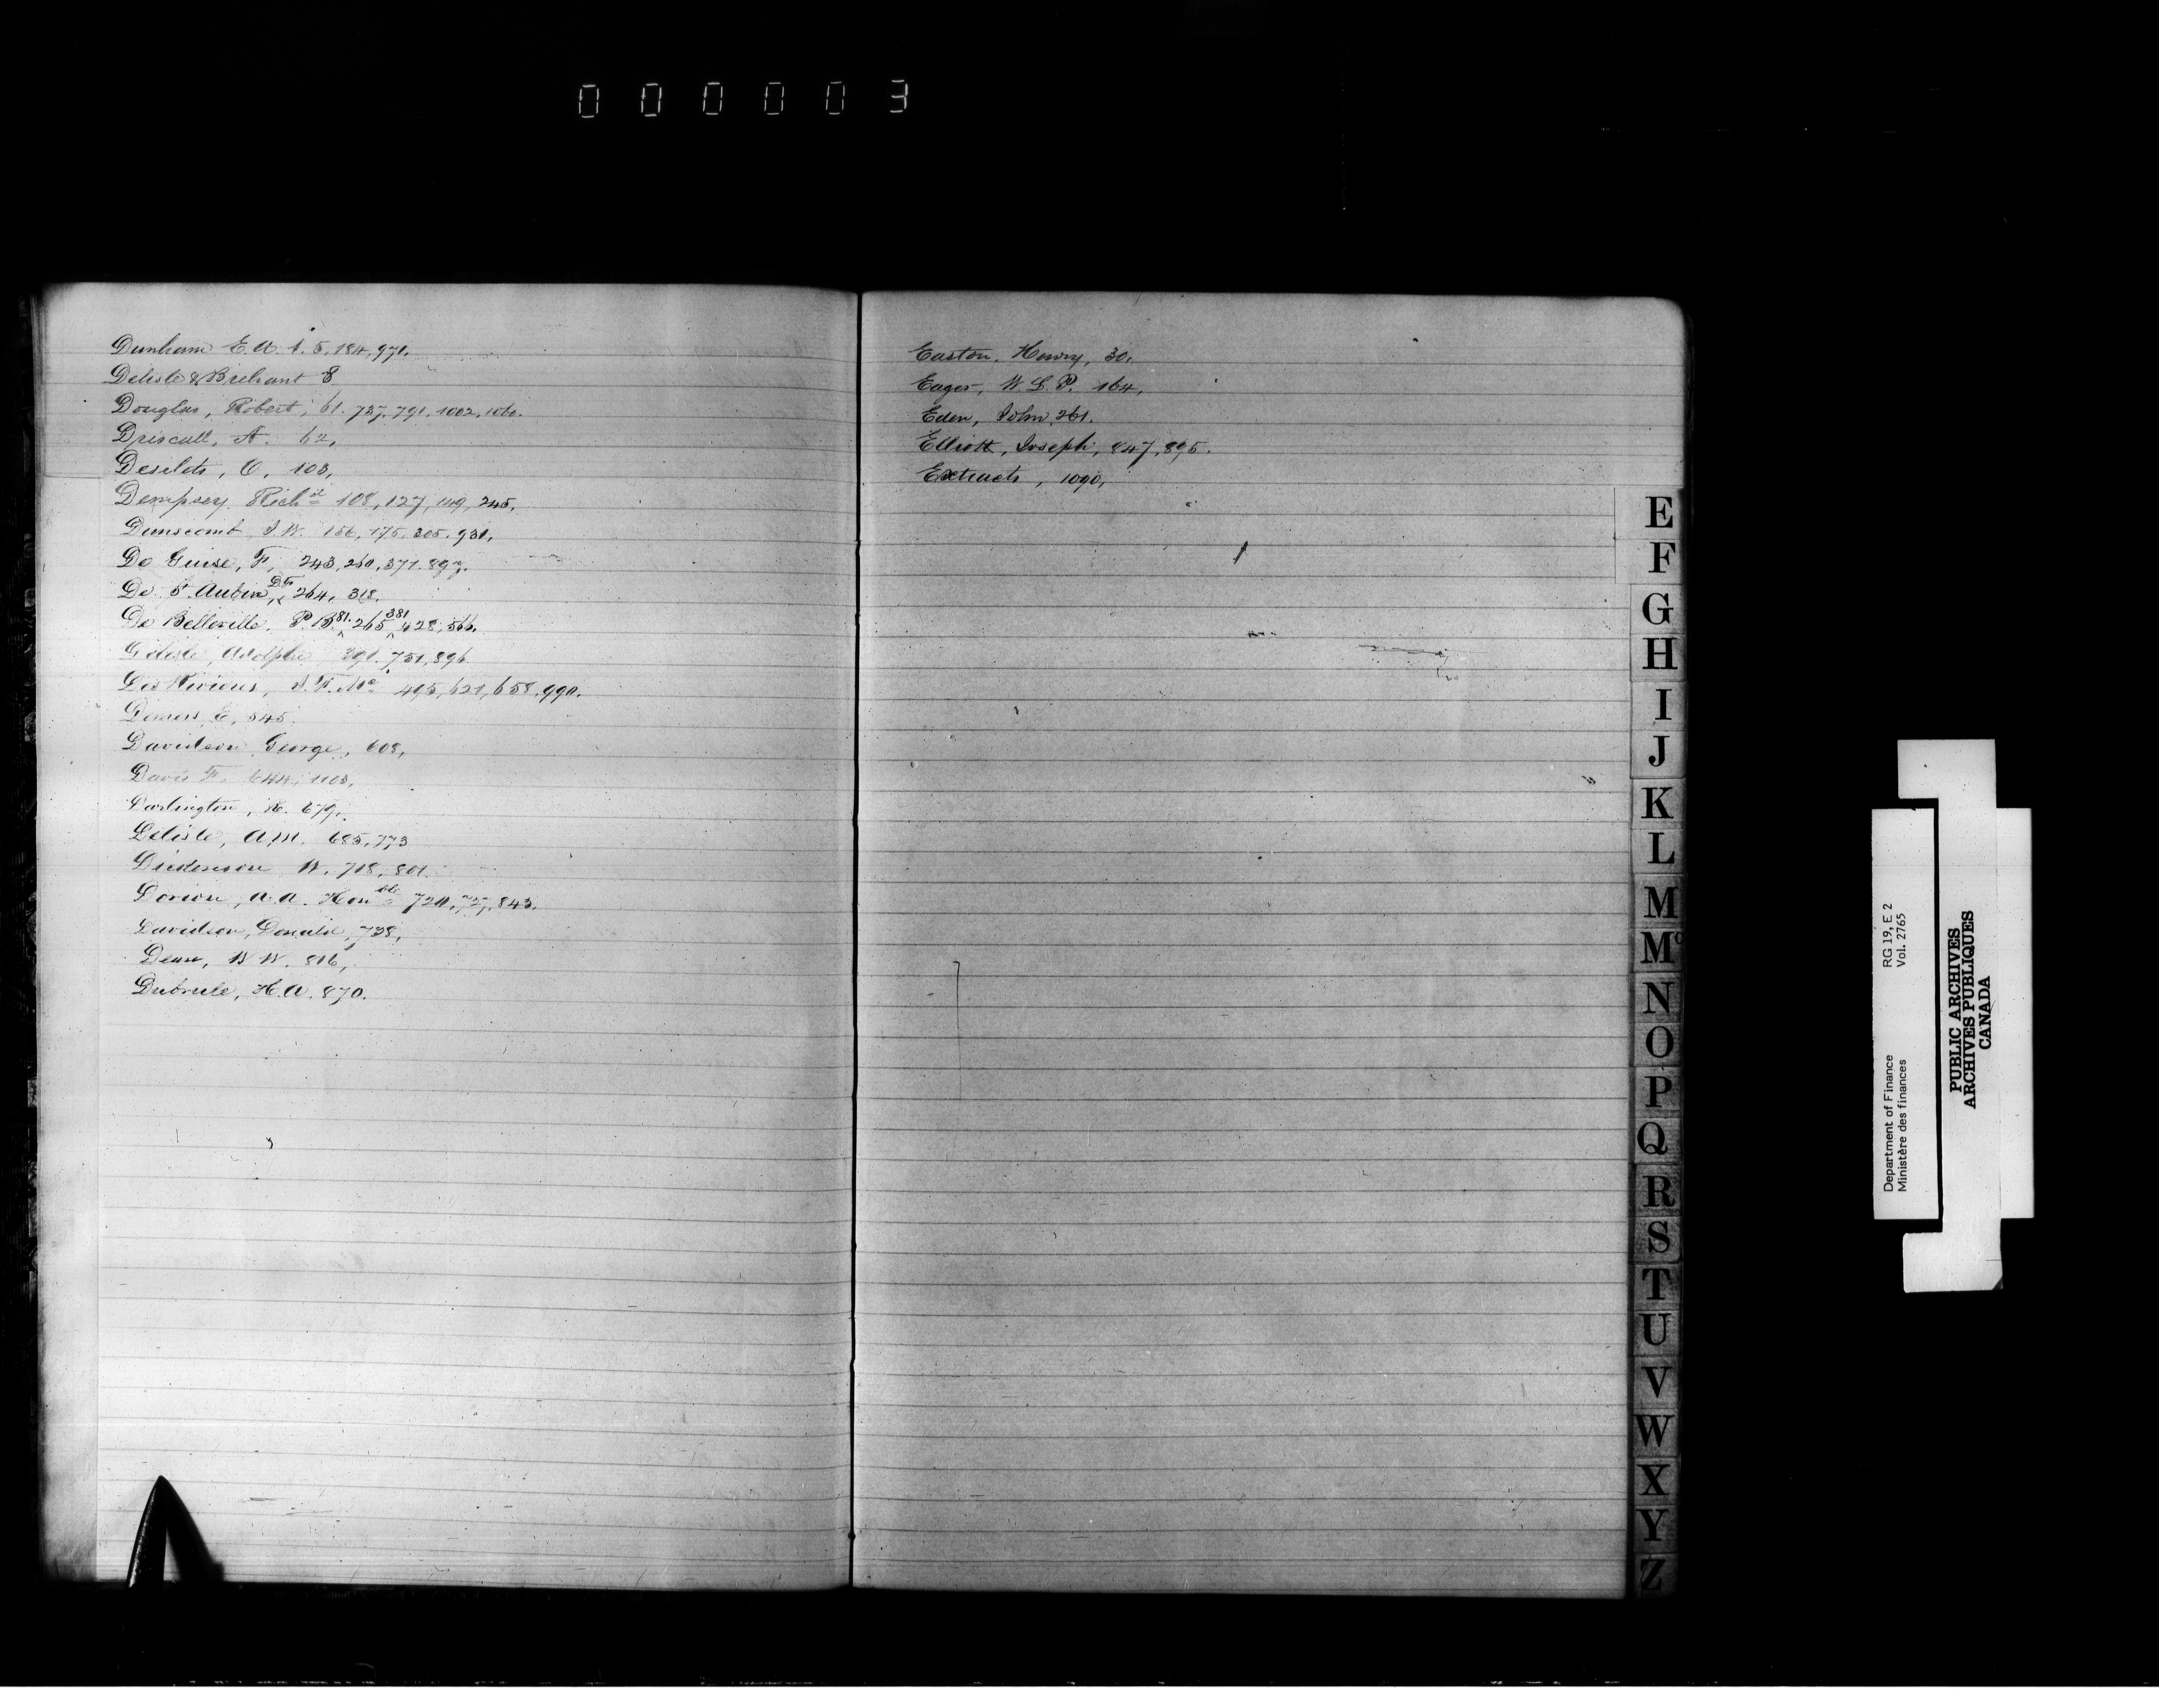 000003
Dunham E. A. 1. 5. 184, 971.
Delisle & Brehant 8
Douglas, Robert, 61. 737. 791. 1002. 1060.
Driscall, A. 62,
Desilets, O. 103,
Dempsey Richd 108, 127, 149, 245,
Dunscomb J. W. 156, 175. 205. 931,
De Guise, F, 243, 260, 371. 897.
De St. Aubin, 264, 318.
De Belleville. P. B. 81. 265 381. 428, 566.
Delisle, Adolphe 751, 896
Des Rivieres, 495, 621, 658. 990.
Demers E, 545.
Davidson George, 608,
Davis F. 644, 1103,
Darlington, 679.
Delisle, A. M. 685, 773
Dickenson W. 718, 801.
Dorion, A. A. Honble 720, 843.
Davidson, Donald, 738,
Dean, W W. 816,
Dubrule, H. A. 870.
Easton, Henry, 30,
Eager, W. L. P. 164,
Eden, John, 261.
Elliott, Joseph, 847, 895.
Extracts, 1090,
E
F
G
H
I
J
K
L
M
Mc
N
O
P
Q
R
S
T
U
V
W
X
Y
Z
Department of Finance RG 19, E 2
Ministère des finances Vol. 2765
PUBLIC ARCHIVES
ARCHIVES PUBLIQUES
CANADA